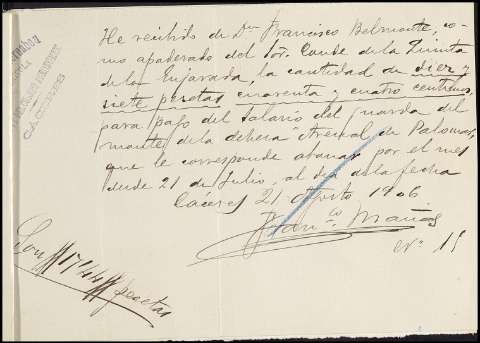 CACERES
He recibido de Dn Francisco Belmonte, co-
mo apoderado del Sor. Conde de la Quinta
de la Enjarada, la cantidad de diez y
siete pesetas cuarenta y cuatro centimos,
para pago del salario del guarda del
monte de la dehesa Arenal de Palomas,
que le corresponde abonar por el mes
desde 21 de Julio, al dia de la fecha
Cáceres 21 Agosto 1906
Franco Mañas
nº 15
Son 17'44 pesetas